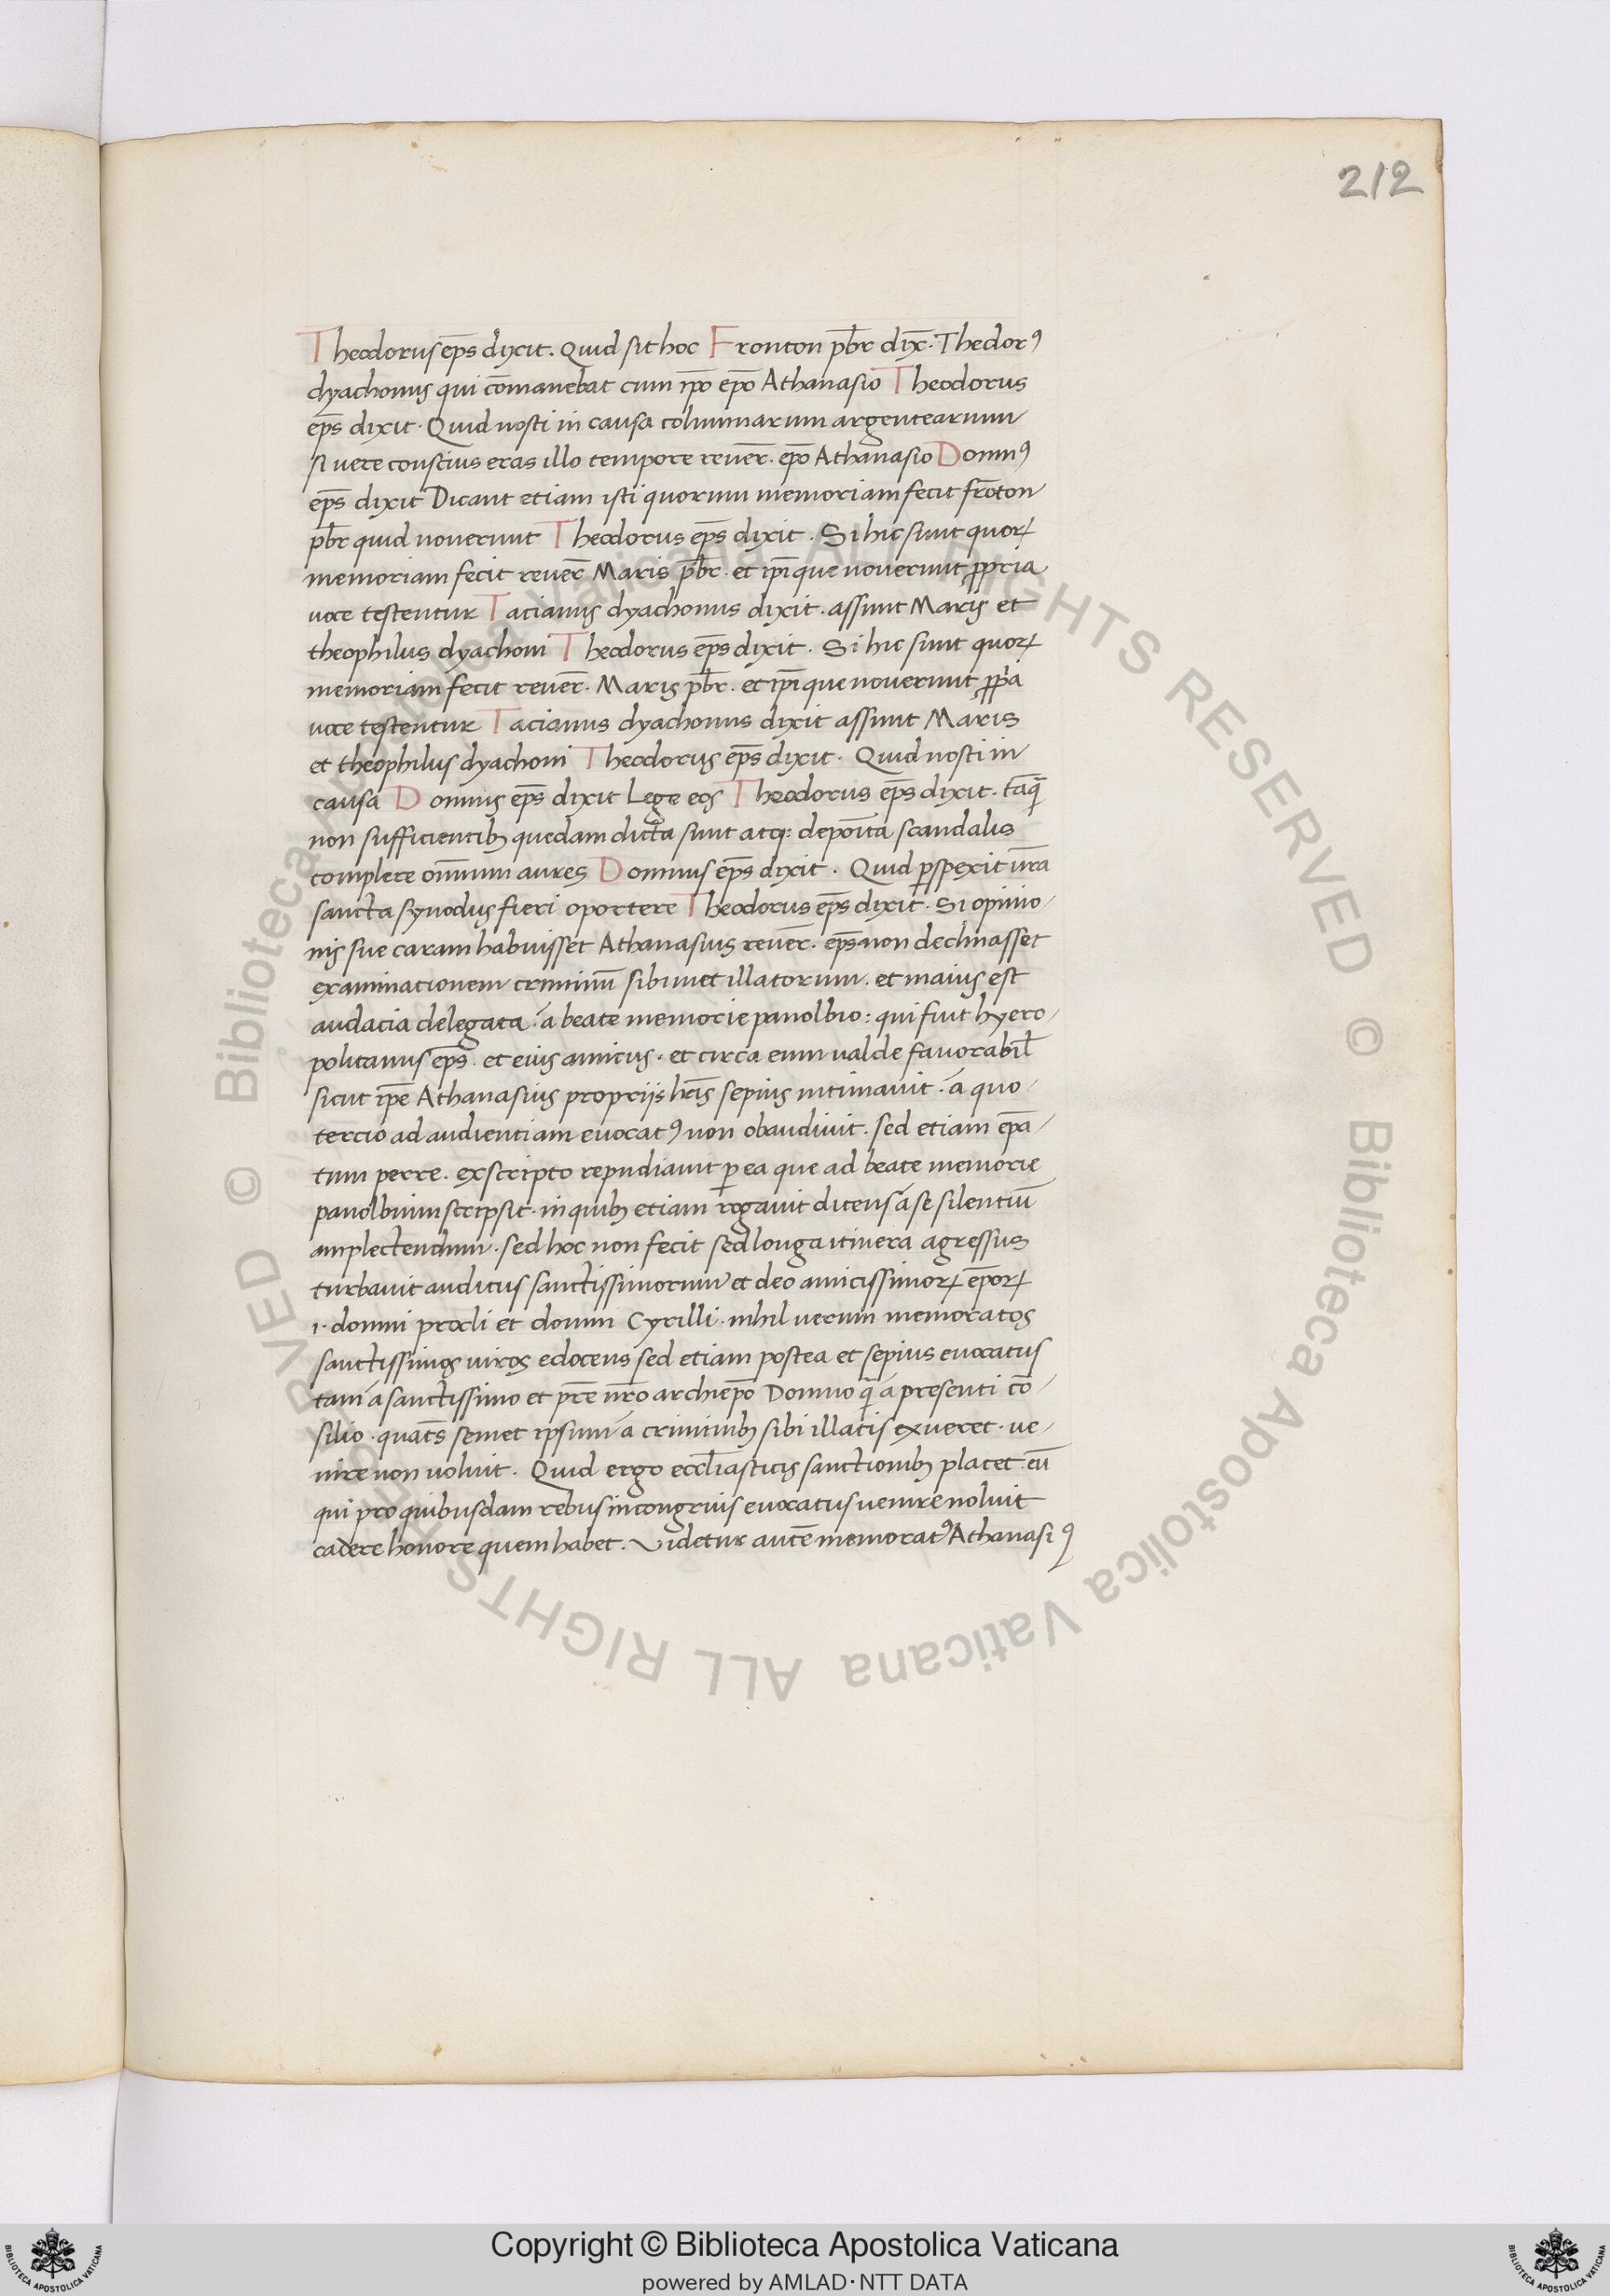 212
Theodorus ep̄s dixit. Quid sit hoc Fronton pb̄r dix̄. Thedorꝰ
dyachonus qui cōmanebat cum ip̄o ep̄o Athanasio Theodorus
ep̄s dixit. Quid nosti in causa columnarum argentearum
si vere conscius eras illo tempore reuer̄. ep̄o Athanasio Domnꝰ
ep̄s dixit Dicant etiam isti quorum memoriam fecit fr̄oton
pb̄r quid noverunt Theodorus ep̄s dixit. Si hic sunt quoꝝ
memoriam fecit reuer̄ Maris pb̄r. et ip̄i que noverunt ꝓpria
voce testentur Tacianus dyachonus dixit. assunt Maris et
theophilus dyachoni Theodorus ep̄s dixit. Si hic sunt quoꝝ
memoriam fecit reuer̄. Maris pb̄r. et ip̄i que noverunt ꝓp̄a
voce testentur Tacianus dyachonus dixit assunt Maris
et theophilus dyachoni Theodorus ep̄s dixit. Quid nosti in
causa Domnus ep̄s dixit Lege eos Theodorus ep̄s dixit. tāq̄
non sufficientibꝫ quedam dicta sunt atqꝫ depoīta scandalis
complere om̄ium aures Domnus ep̄s dixit. Quid ꝑspexit vr̄a
sancta synodus fieri oportere Theodorus ep̄s dixit. Si opinio-
nis sue caram habuisset Athanasius reuer̄. ep̄s non declinasset
examinationem criminū sibimet illatorum. et maius est
audacia delegata. á beate memorie panolbio: qui fuit hyero-
politanus ep̄s. et eius amicus. et circa eum valde favorabil̄
sicut ip̄e Athanasius propriis lr̄is sepius intimavit. á quo-
tercio ad audientiam evocatꝰ non obaudivit. sed etiam ep̄a-
tum perre. exscripto repudiavit ꝑ ea que ad beate memorie
panolbium scripsit. in quibꝫ etiam rogavit dicens á se silentiū
amplectendum. sed hoc non fecit sed longa itinera agressus
turbavit auditus sanctissimorum et deo amicissimoꝝ ep̄oꝝ
i. domni procli et domni Cyrilli. nihil verum memoratos
sanctissimos viros edocens sed etiam postea et sepius evocatus
tam á sanctissimo et pr̄e nr̄o archiep̄o Domno q̄ á presenti cō-
silio. quat̄s semet ipsum á criminibꝫ sibi illatis exueret. ve-
nire non voluit. Quid ergo eccl̄iasticis sanctionibꝫ placet. eū
qui pro quibusdam rebus incongruis evocatus venire noluit
cadere honore quem habet. Videtur autē memoratꝰ Athanasiꝰ
© Biblioteca Apostolica Vaticana ALL RIGHTS RESERVED © Biblioteca Apostolica Vaticana ALL RIGHTS RESERVED
Copyright © Biblioteca Apostolica Vaticana
powered by AMLAD·NTT DATA
BIBLIOTECA APOSTOLICA VATICANA
BIBLIOTECA APOSTOLICA VATICANA